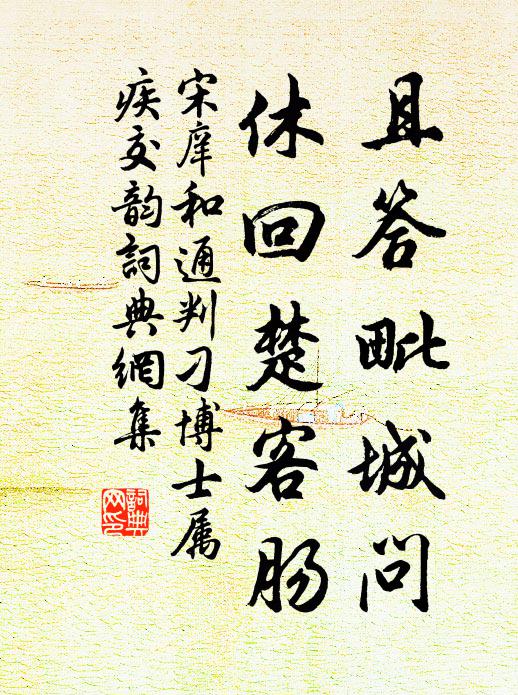 且答毗城问
休回楚客肠
宋庠和通判刁博士属
疾交韵詞典網集
詞典网印